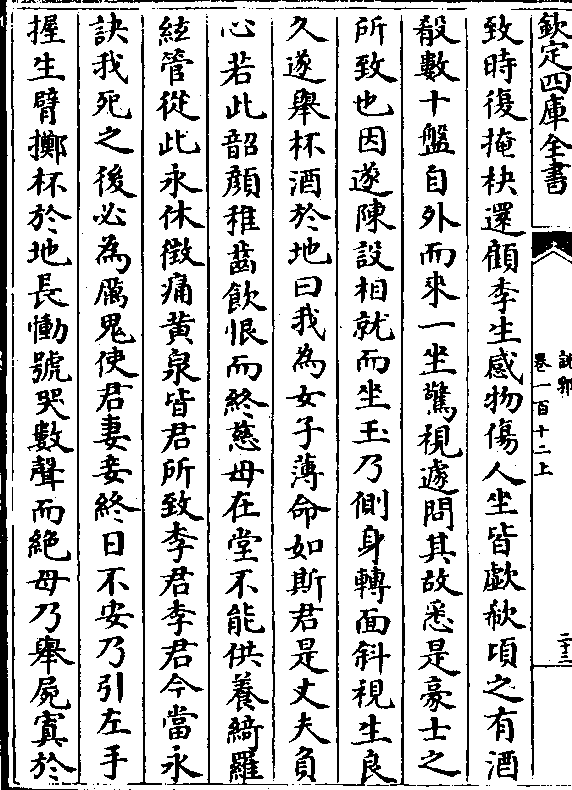 欽定四庫全書
說郛
卷一百十二上
二十三
致時復掩袂還顧李生感物傷人坐皆歔欷頃之有酒
殽數十盤自外而來一坐驚視遽問其故悉是豪士之
所致也因遂陳設相就而坐玉乃側身轉面斜視生良
久遂舉杯酒於地曰我為女子薄命如斯君是丈夫負
心若此韶顔稚齒飲恨而終慈母在堂不能供養綺羅
絃管從此永休徴痛黄泉皆君所致李君李君今當永
訣我死之後必為厲鬼使君妻妾終日不安乃引左手
握生臂擲杯於地長慟號哭數聲而絶母乃舉屍寘於